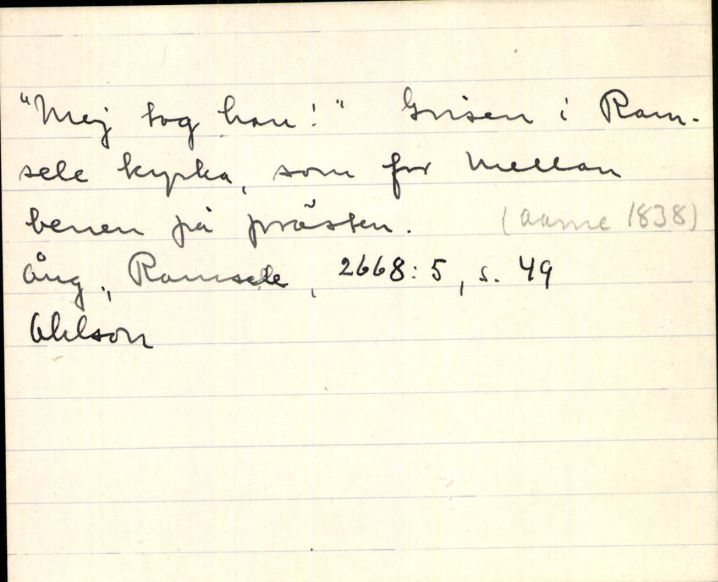 "Mej tog han!" Grisen i Ram-
sele kyrka, som for mellan
benen på prästen. (Aarne 1838)
Ång., Ramsele, 2668:5, s. 49
Ohlson